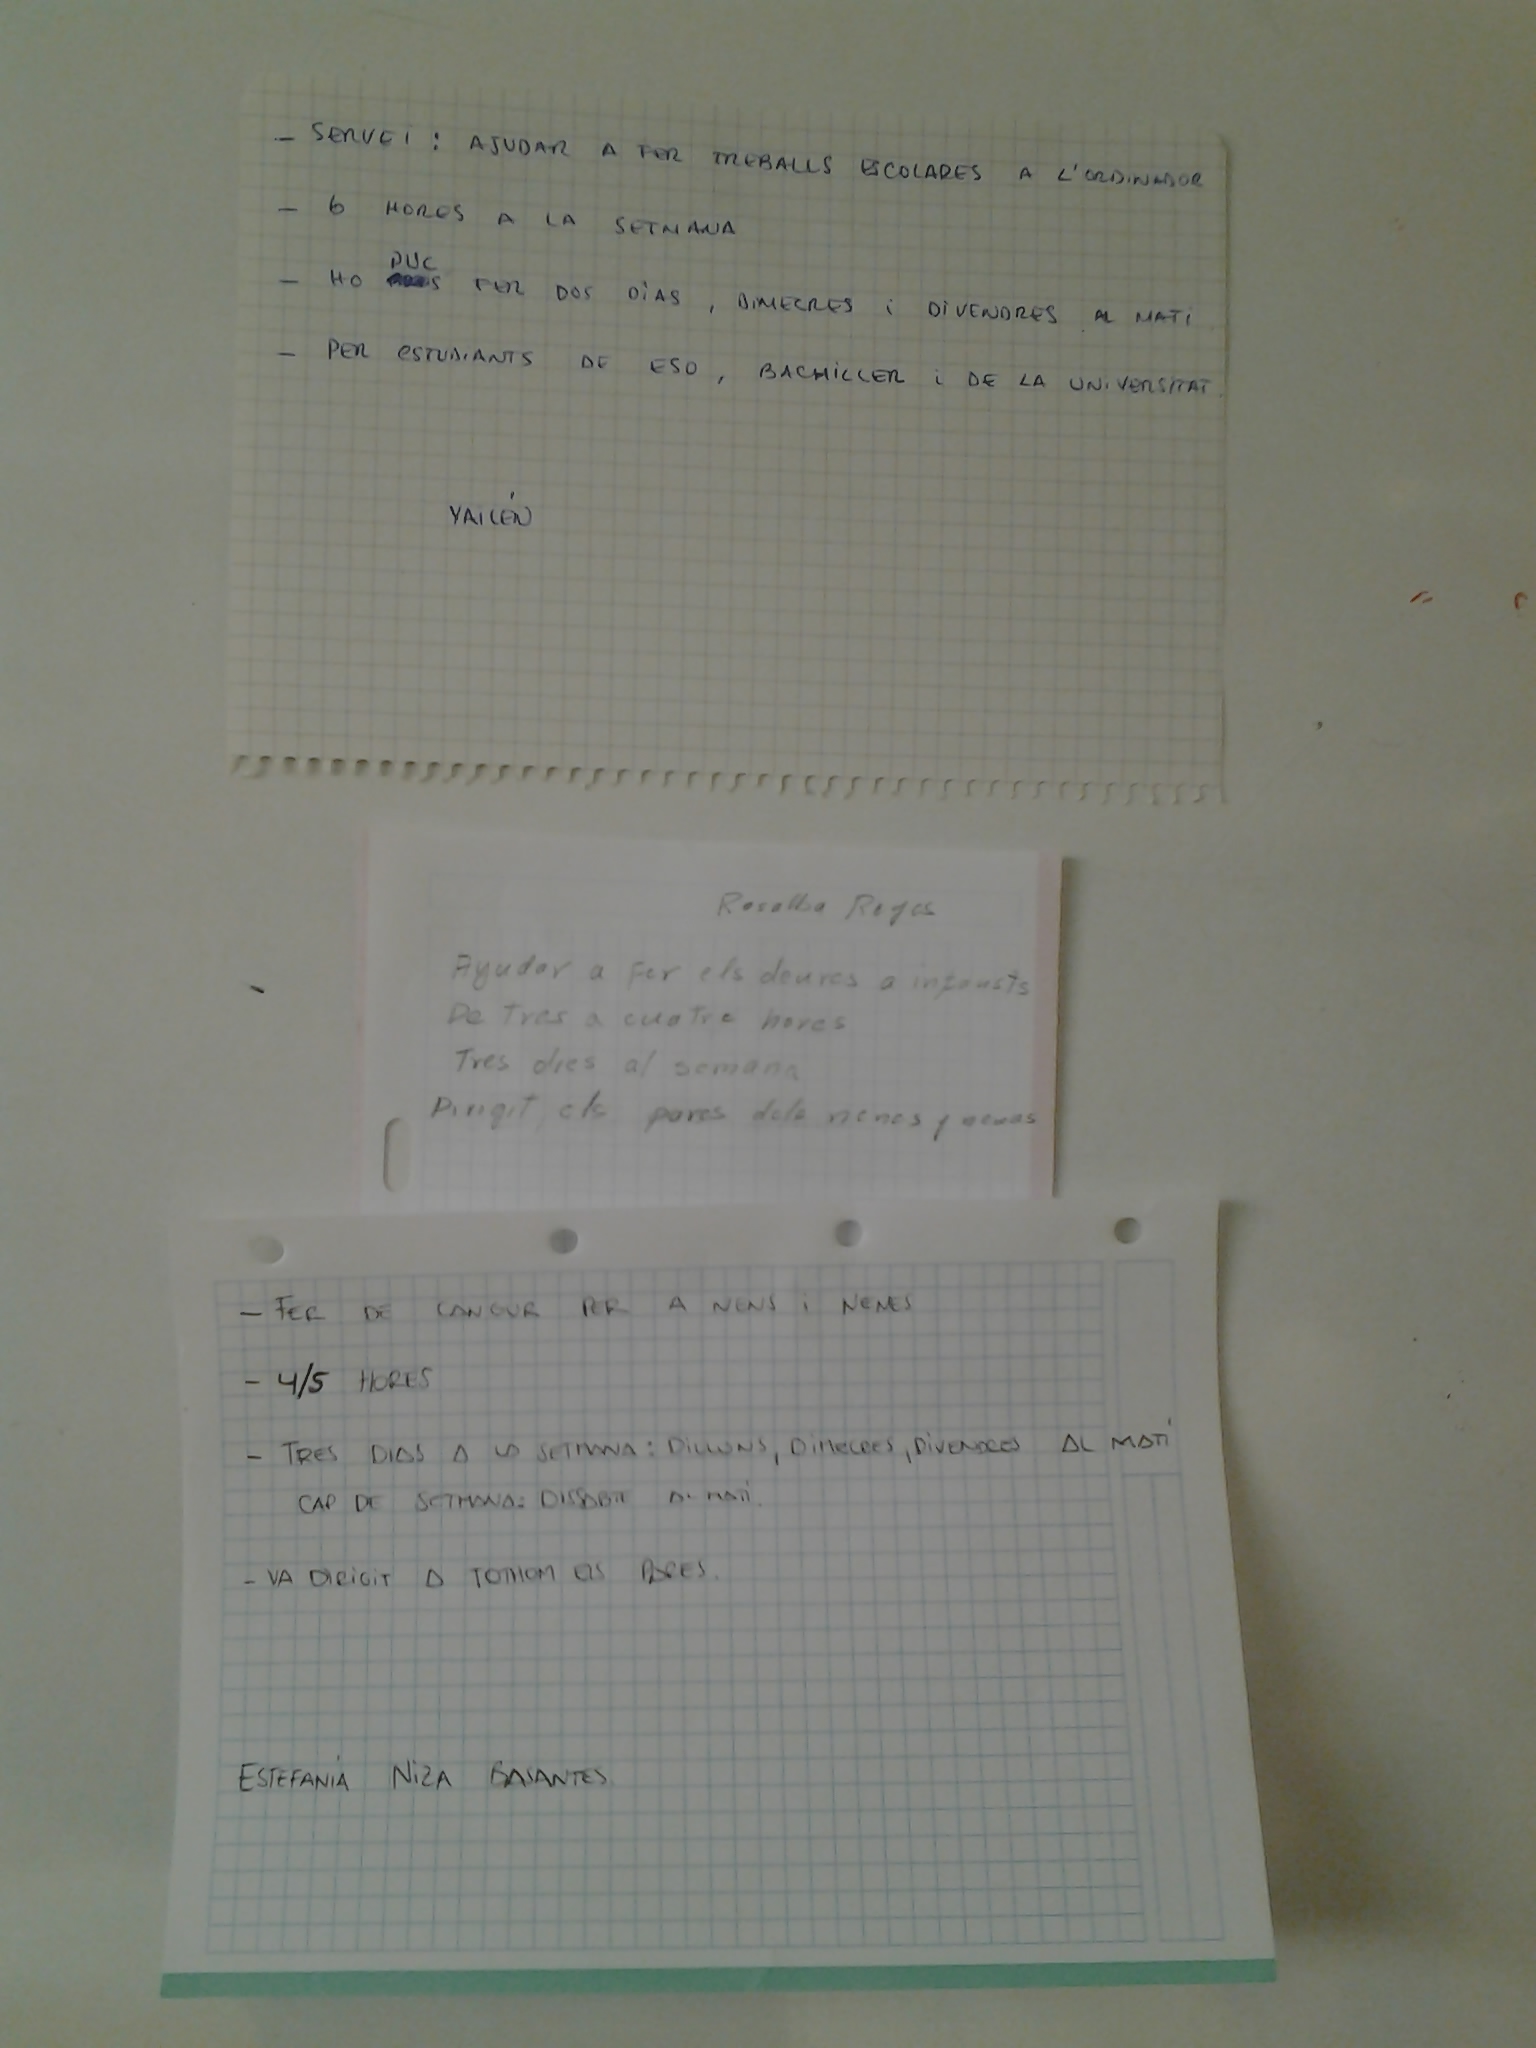 - SERVEI: AJUDAR A FER TREBALLS ESCOLARES A L'ORDINADOR
- 6 HORES A LA SETMANA
- HO PUC FER DOS DÍAS, DIMECRES i DIVENDRES AL MATI
- PER ESTUDIANTS DE ESO, BACHILLER i DE LA UNIVERSITAT.
YAILÉN
Rosalba Rojas
Ayudar a Fer els deures a
De Tres a cuatre hores
Tres dies al semana
Dirigit, els pares dels nenes y nenas
- FER DE CANGUR PER A NENS i NENES
- 4/5 HORES
- TRES DIAS A LA SETMANA: DILLUNS, DIMECRES, DIVENDRES AL MATÍ
CAP DE SETMANA: DISSABTE AL MATÍ.
- VA DIRIGIT A TOTHOM ELS PARES.
ESTEFANÍA NIZA BASANTES